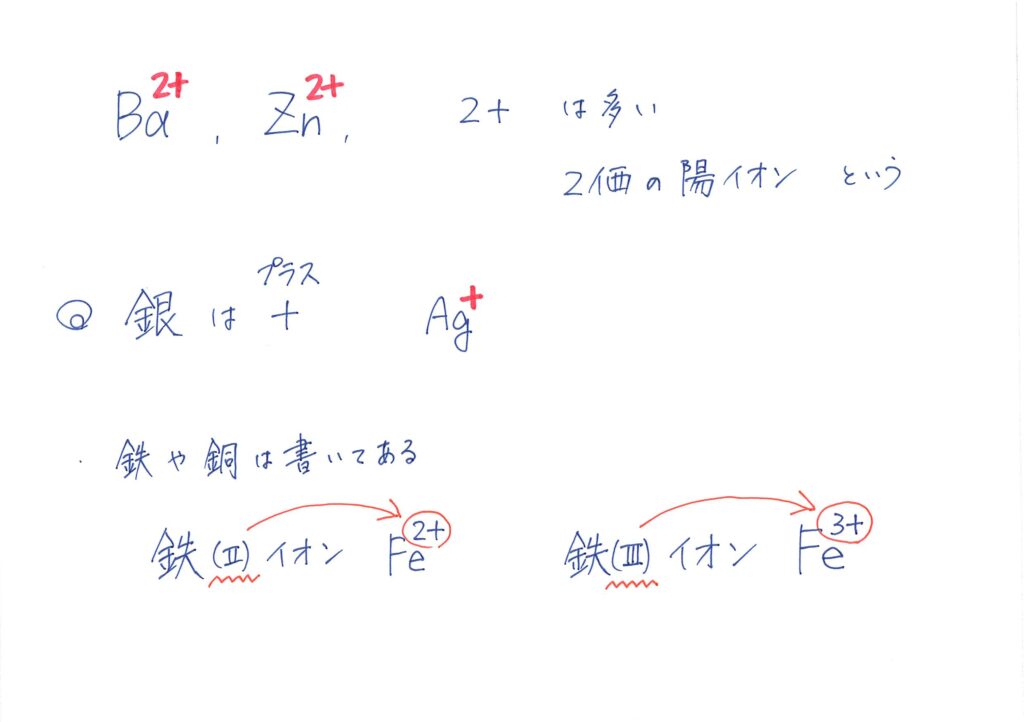 Ba²⁺, Zn²⁺, 2+ は多い
2価の陽イオン という
◎ 銀は + プラス Ag⁺
・ 鉄や銅は書いてある
鉄(Ⅱ)イオン Fe²⁺ 鉄(Ⅲ)イオン Fe³⁺